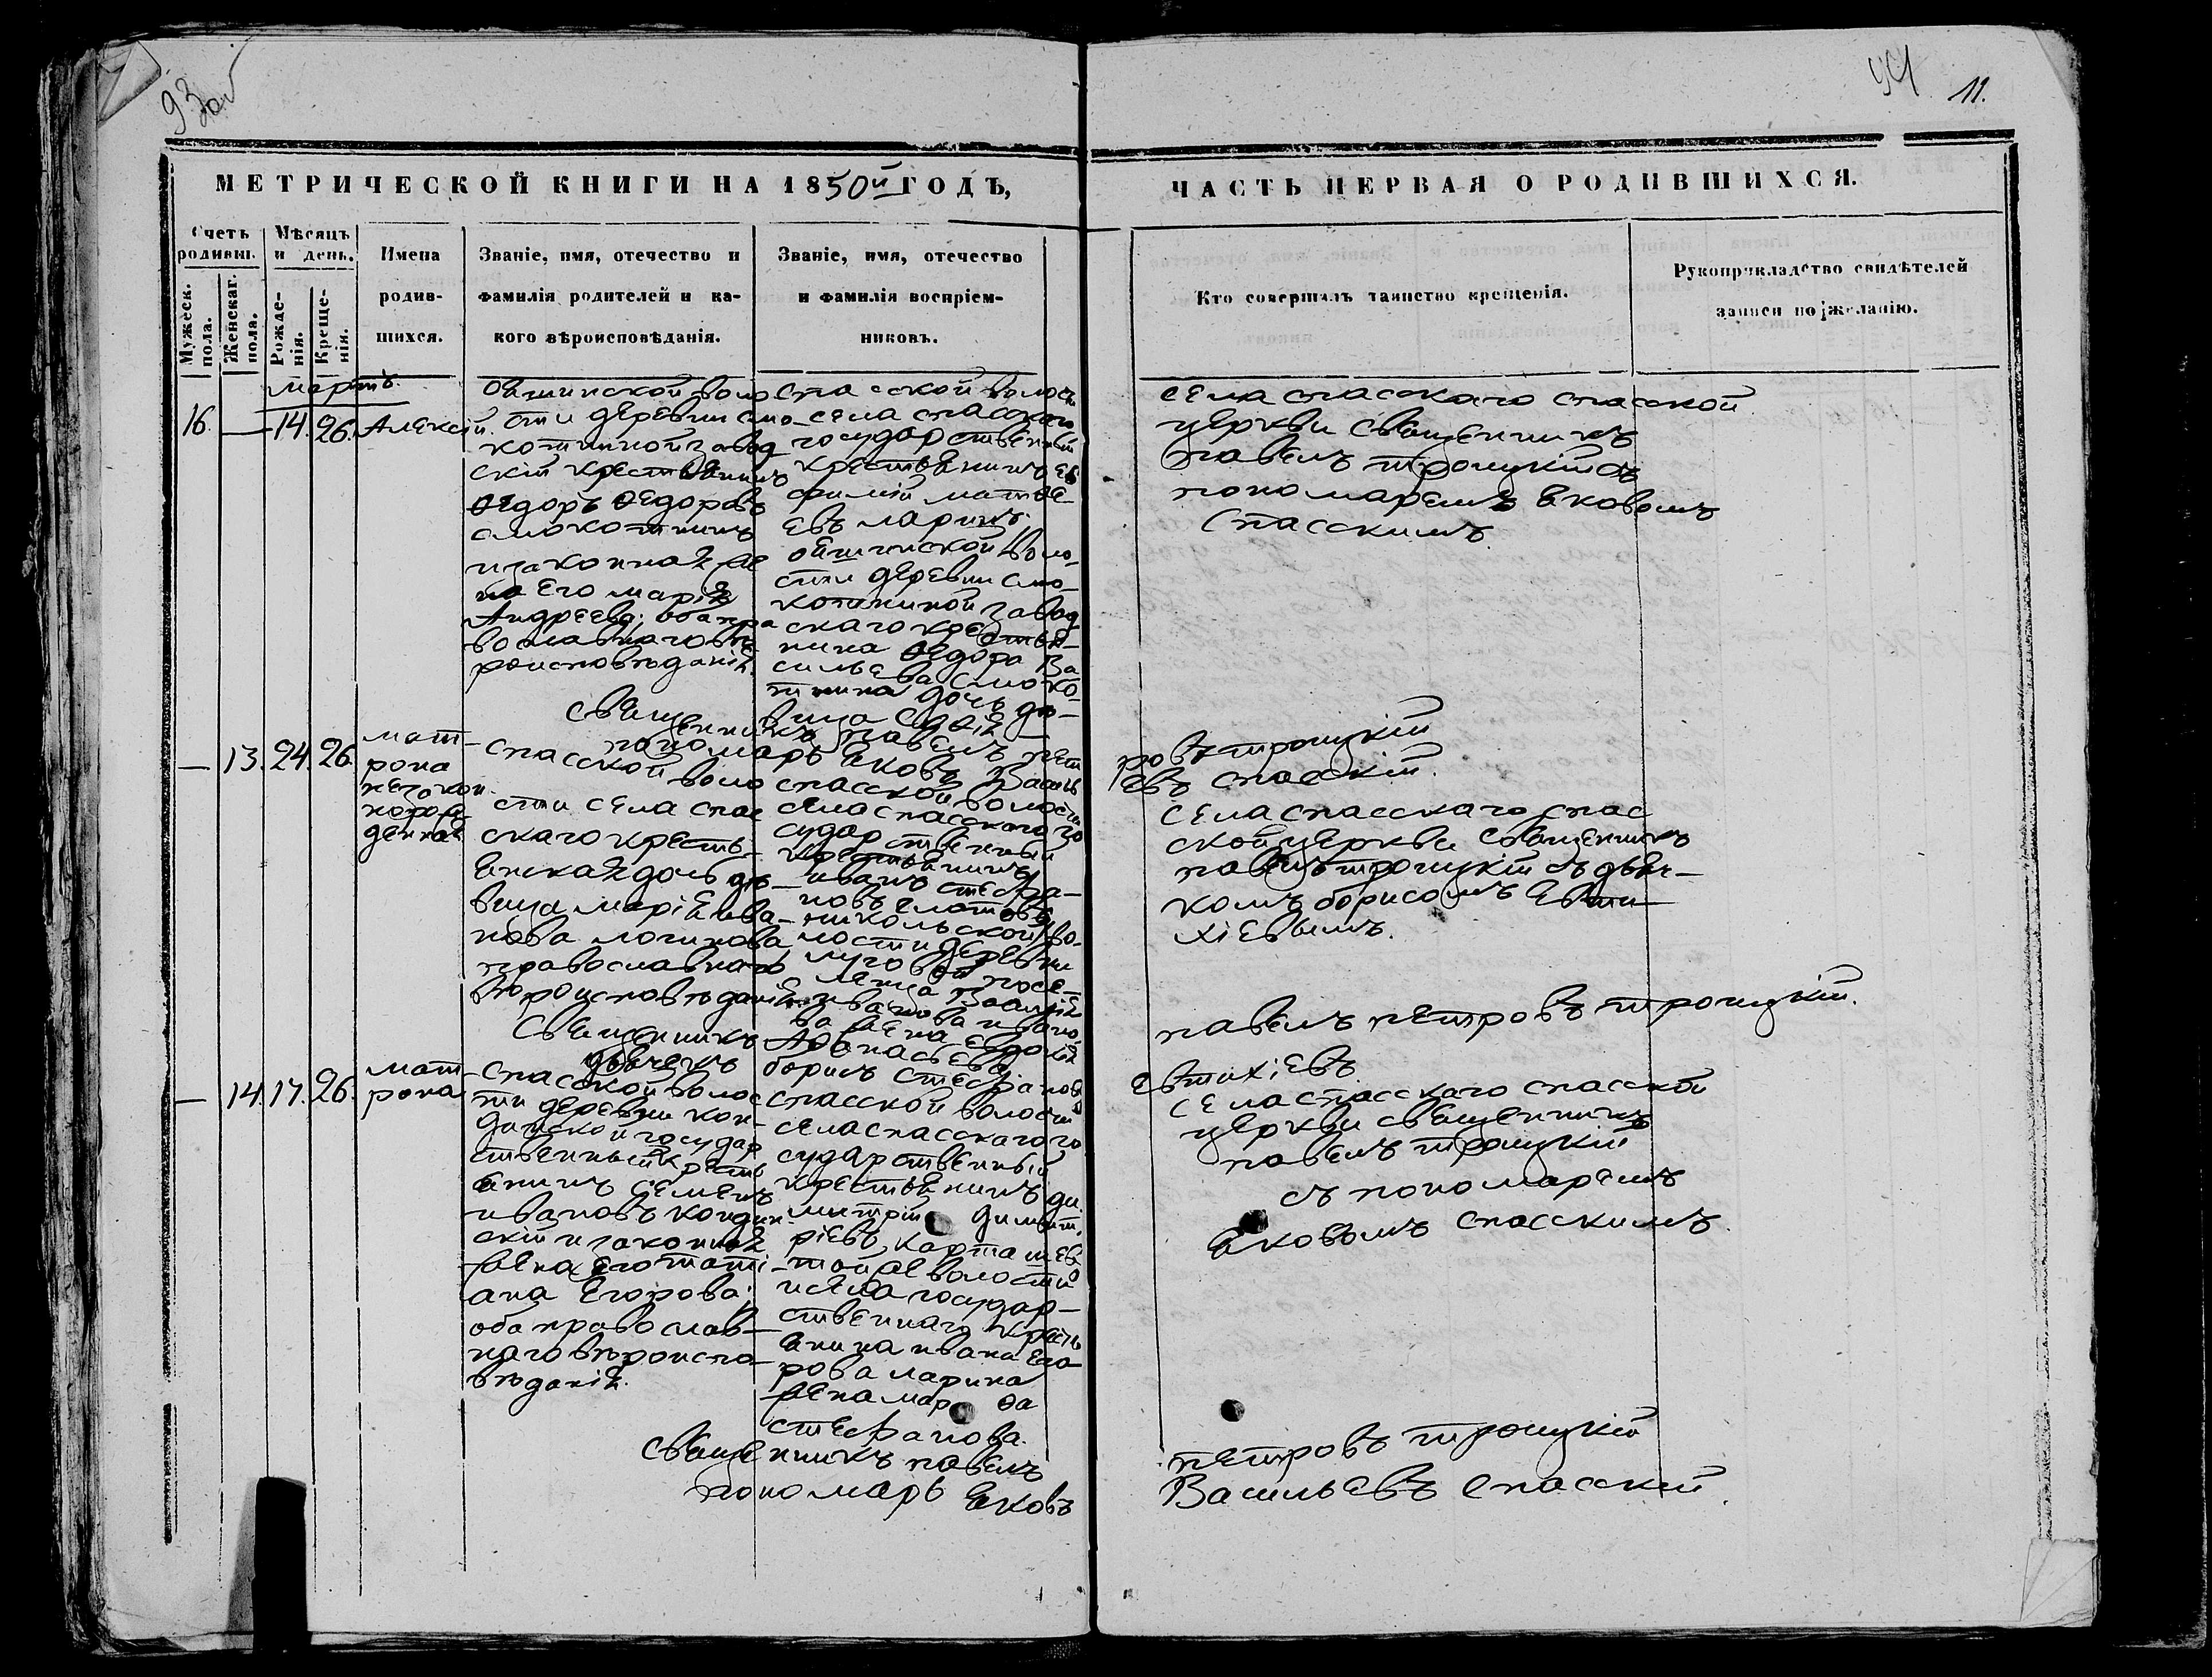 93 об
94
11.
МЕТРИЧЕСКОЙ КНИГИ НА 1850й ГОДЪ,
ЧАСТЬ ПЕРВАЯ О РОДИВШИХСЯ.
Счетъ родивш.
Мужеск. пола.
Женскаг. пола.
Мѣсяцъ и день.
Рожденія.
Крещенія.
Имена
родив-
шихся.
Званіе, имя, отечество и
фамилія родителей и ка-
кого вѣроисповѣданія.
Званіе, имя, отечество
и фамилія воспріем-
никовъ.
Кто совершалъ таинство крещенія.
Рукоприкладство свидѣтелей
записи по желанію.
мартъ.
16. — 14. 26. Алексій.
воло
сти деревни Смо-
котиной завод
скій крестьянинъ
Ѳедоръ Ѳедоровъ
Смокотнинъ
и законная же
на его марія
Андреева; оба пра
вославнаго вѣ
роисповѣданія.
Спасской волости
села спасскаго
государственный
крестьянинъ Ев
фимій матѳе
евъ ларинъ;
воло
сти деревни Смо
котиной завод
скаго крестья-
нина Ѳедора Ва
сильева Смоко
тнина дочь дѣ-
вица
села спасскаго спасской
церкви священникъ
павелъ троицкій съ
пономаремъ Яковомъ
Спасскимъ.
Священникъ павелъ пет
ровъ троицкій
пономарь Яковъ Василь
евъ спасскій.
— 13. 24. 26.
мат-
рона
незакон
норож
денная
спасской воло
сти села спас
скаго кресть-
янская дочь дѣ-
вица марія ива-
нова логинова
православнаго
вѣроисповѣданія.
спасской волости
села спасскаго го
сударственный
крестьянинъ
иванъ стефа-
новъ
никольской во-
лости деревни
луговой посе-
ленца
иванова
жена Евдокія
Аѳанасьева
села спасскаго спас
ской церкви священникъ
павелъ троицкій съ дьяч-
комъ борисомъ Евти-
хіевымъ.
Священникъ
павелъ петровъ троицкій.
дьячекъ борисъ стефановъ
Евтихіевъ
— 14. 17. 26.
мат-
рона
Спасской волос
ти деревни кон-
динской государ
ственный кресть
янинъ семенъ
ивановъ кондин-
скій и законная
жена его тати-
ана Егорова;
оба православ-
наго вѣроиспо-
вѣданія.
спасской волости
села спасскаго го
сударственный
крестьянинъ ди
митрій димит
ріевъ карташев
той же волости
и села государ-
ственнаго кресть
янина ивана Его-
рова ларина
жена марѳа
стефанова.
села спасскаго спасской
церкви священникъ
павелъ троицкій
съ пономаремъ
Яковомъ спасскимъ.
Священникъ павелъ
петровъ троицкій
пономарь Яковъ
Васильевъ спасскій.